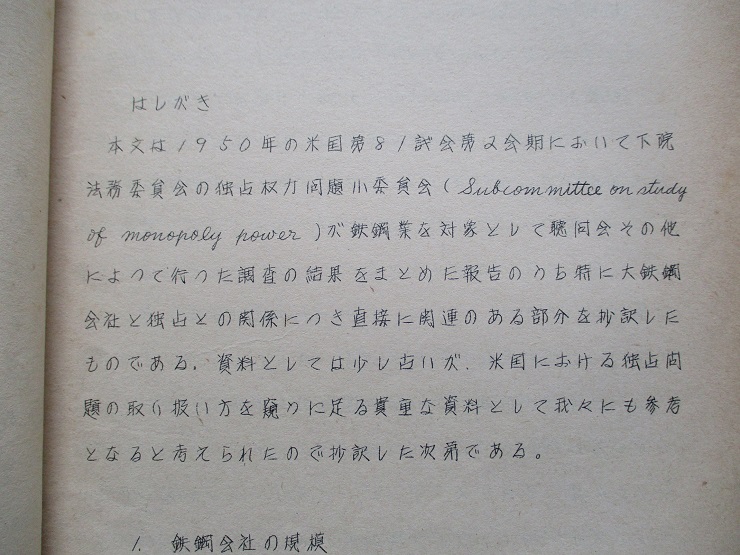 はしがき
本文は1950年の米国第81議会第2会期において下院
法務委員会の独占权力问題小委員会(Subcommittee on study
of monopoly power)が鉄鋼業を対象として聴问会その他
によつて行つた調査の結果をまとめた報告のうち特に大鉄鋼
会社と独占との関係につき直接に関連のある部分を抄訳した
ものである。資料としては少し古いが、米国における独占问
題の取り扱い方を窺うに足る貴重な資料として我々にも参考
となると考えられたので抄訳した次第である。
1. 鉄鋼会社の規模